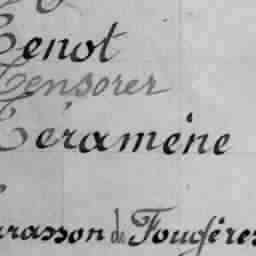 Cenot
Censorer
Céramène
arasson de Fougères